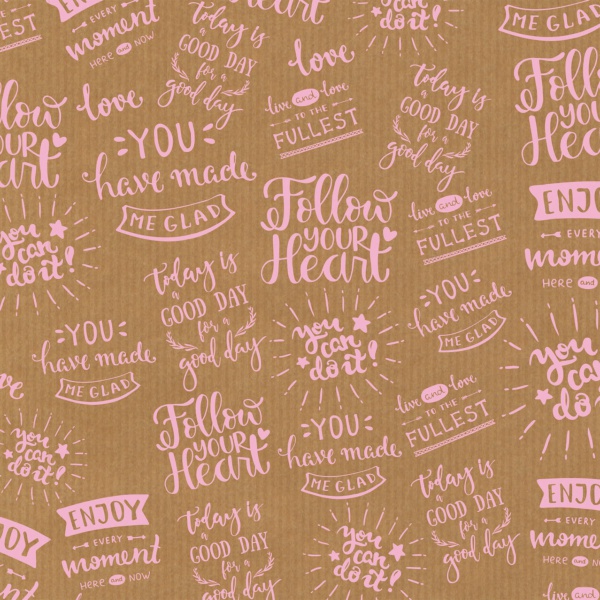 EST
EVERY
moment
HERE and NOW
today is
a
GOOD DAY
for a
good day
Heart
love
you
can
do it!
ME GLAD
love
live and love
TO THE
FULLEST
today is
a
GOOD DAY
for a
good day
Follow
YOUR
Heart
Follow
YOUR
Heart
YOU
have made
ME GLAD
Follow
YOUR
Heart
live and love
TO THE
FULLEST
ENJOY
EVERY
moment
HERE and
you
can
do it!
today is
a
GOOD DAY
for a
good day
you
can
do it!
YOU
have made
ME GLAD
YOU
have made
ME GLAD
you
can
do
love
Follow
YOUR
Heart
YOU
have made
ME GLAD
live and love
TO THE
FULLEST
you
can
do it!
ENJOY
EVERY
moment
HERE and NOW
today is
a
GOOD DAY
for a
good day
you
can
do it!
today is
a
GOOD DAY
for a
good day
ENJOY
EVERY
moment
HERE and